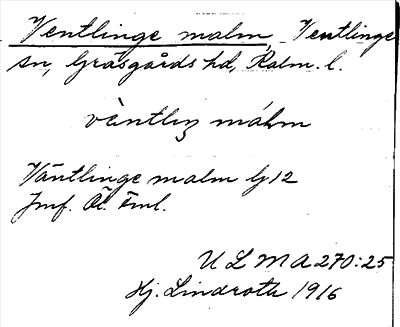 Ventlinge malm, Ventlinge
sn, Gräsgårds hd, Kalm. l.
vèntliŋ málm
Väntlinge malm G 12
Jmf. Öl. Fml.
U L M A 270:25
Hj. Lindroth 1916